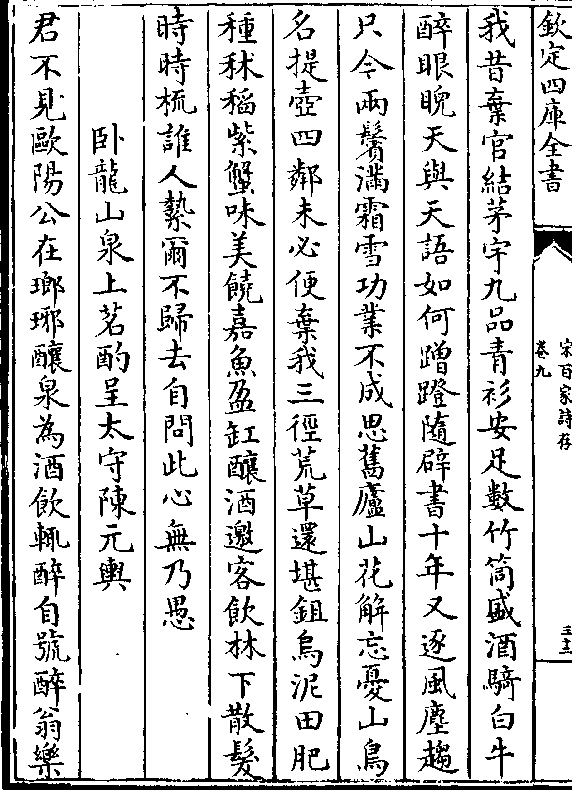 欽定四庫全書
宋百家詩存
卷九
三十三
我昔棄官結茅宇九品青衫安足數竹筒盛酒騎白牛
醉眼睨天與天語如何蹭蹬隨辟書十年又逐風塵趨
只今兩鬢滿霜雪功業不成思舊廬山花解忘憂山鳥
名提壺四鄰未必便棄我三徑荒草還堪鉏烏泥田肥
種秫稻紫蟹味美饒嘉魚盈缸釀酒邀客飲林下散髮
時時梳誰人縶爾不歸去自問此心無乃愚
卧龍山泉上茗酌呈太守陳元輿
君不見歐陽公在瑯琊釀泉為酒飲輒醉自號醉翁樂